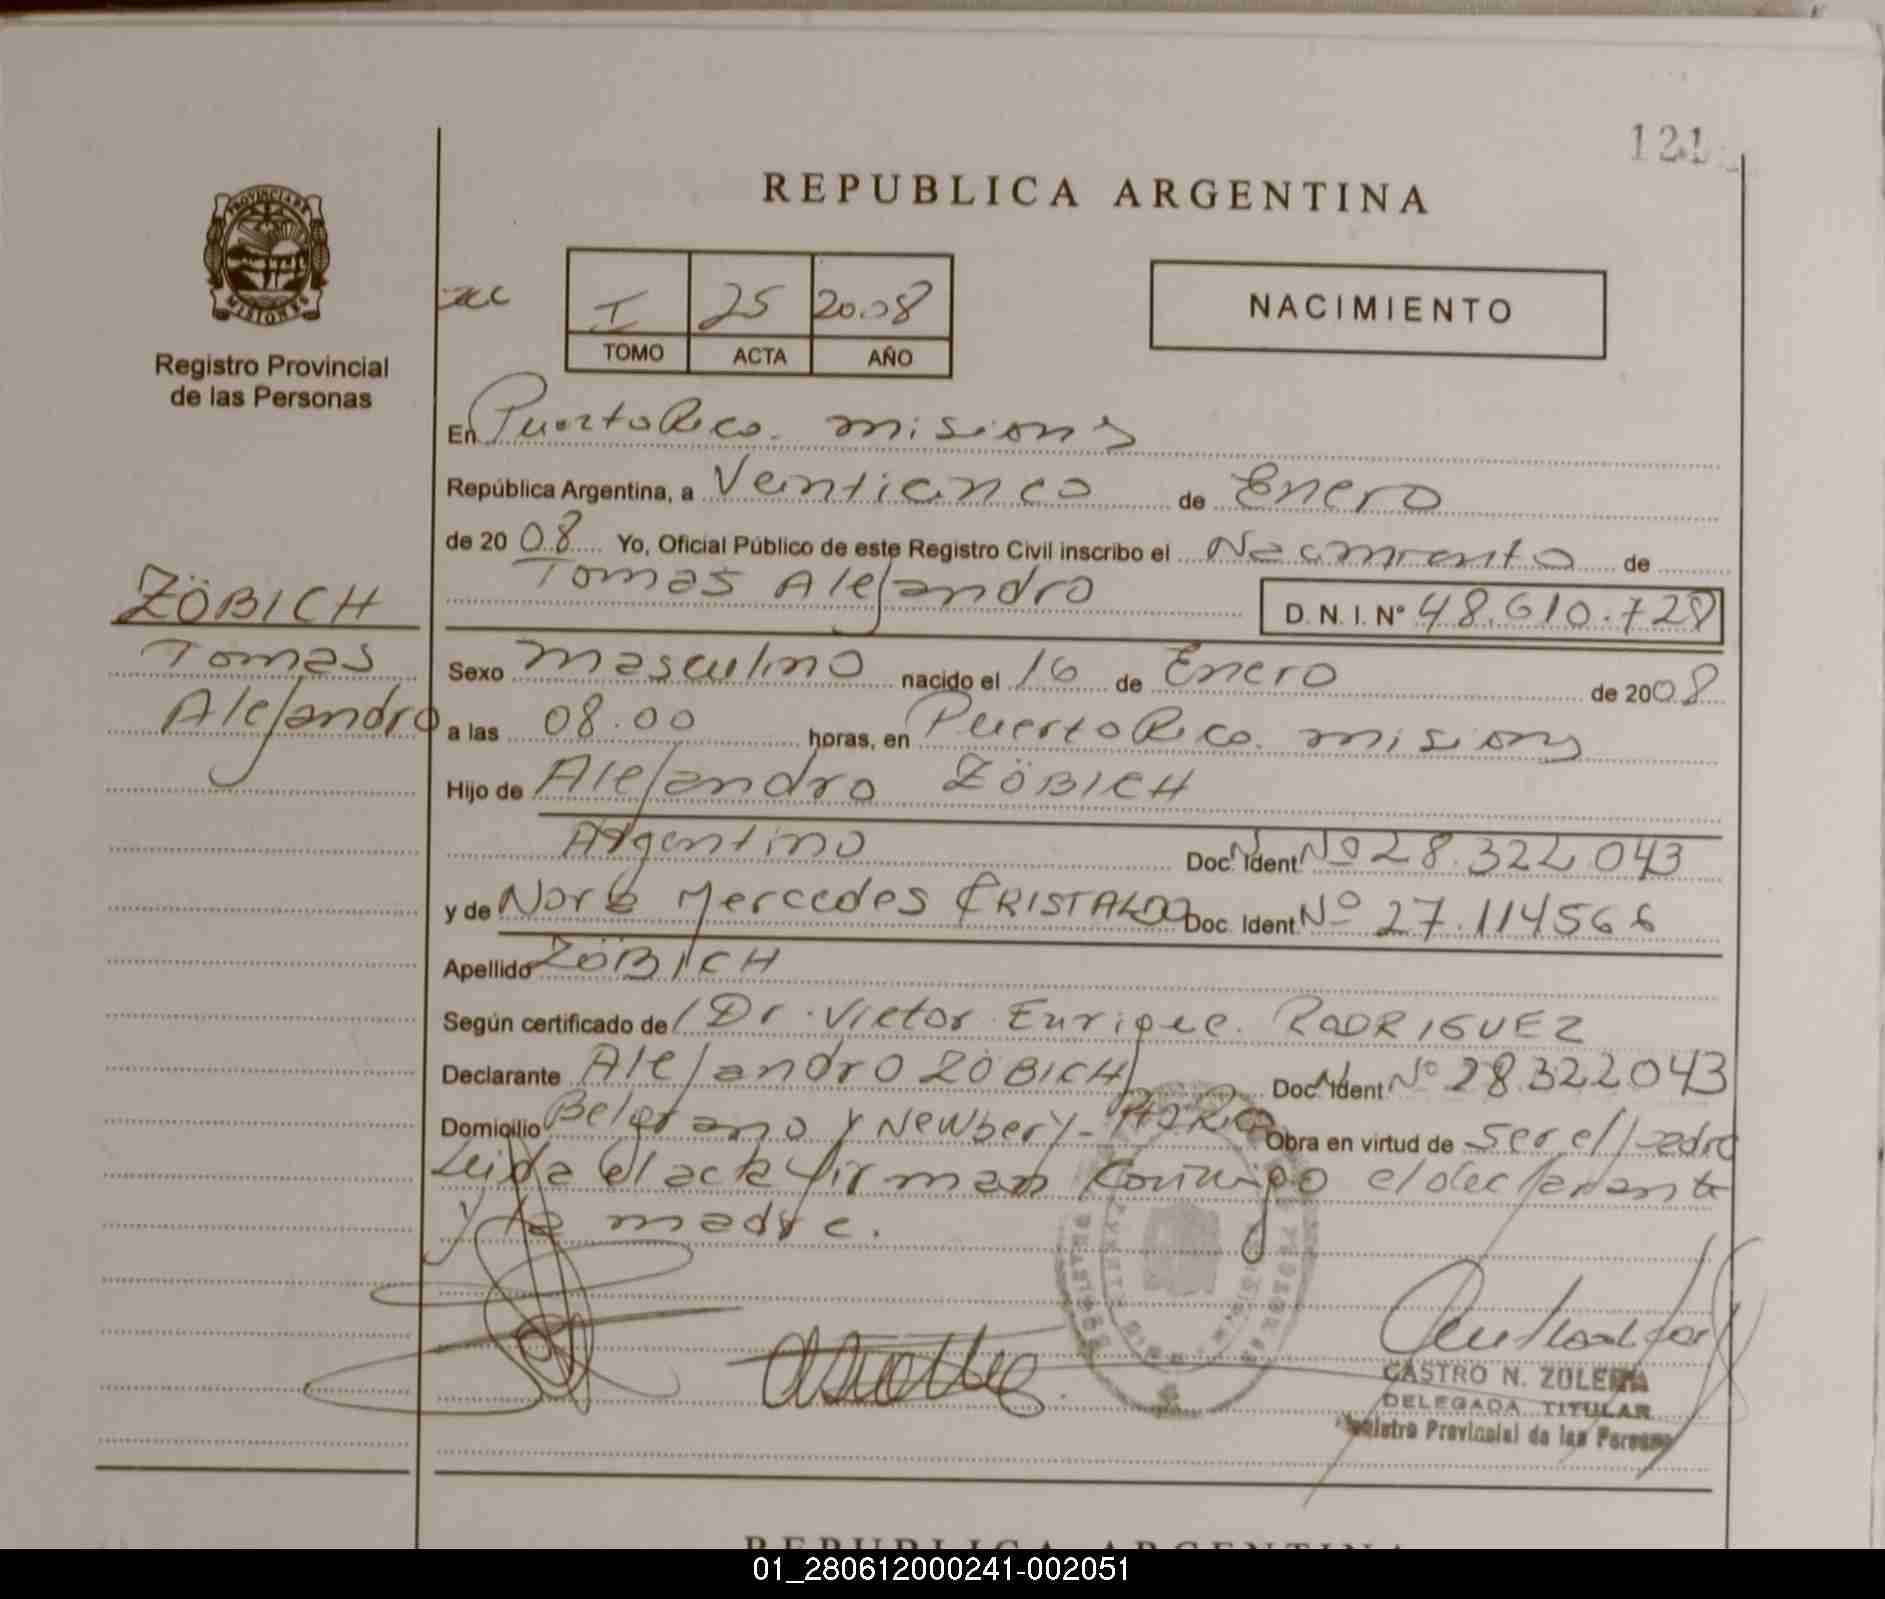 121
REPUBLICA ARGENTINA
PROVINCIA DE
MISIONES
Registro Provincial
de las Personas
I 25 2008
TOMO ACTA AÑO
NACIMIENTO
En Puerto Rico. misiones
República Argentina, a Veinticinco de Enero
de 20 08 Yo, Oficial Público de este Registro Civil inscribo el Nacimiento de
Tomas Alejandro D. N. I. N° 48.610.728
ZÖBICH
Tomas
Alejandro
Sexo masculino nacido el 16 de Enero de 2008
a las 08.00 horas, en Puerto Rico. misiones
Hijo de Alejandro ZÖBICH
Argentino Doc. Ident Nº 28.322.043
y de Norma Mercedes CRISTALDO Doc. Ident. Nº 27.114566
Apellido ZÖBICH
Según certificado de Dr. Victor Enrique. RODRIGUEZ
Declarante Alejandro ZÖBICH Doc. Ident Nº 28.322043
Domicilio Belgrano y Newbery - Obra en virtud de ser el padre
Leida el acta firman conmigo el declarante
y la madre.
CASTRO N. ZULEMA
DELEGADA TITULAR
Registro Provincial de las Personas
REPUBLICA ARGENTINA
01_280612000241-002051